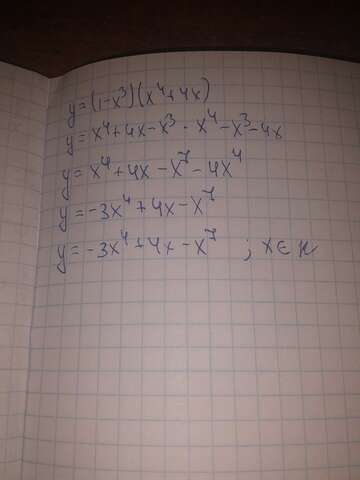 y=(1-x³)(x⁴+4x)
y=x⁴+4x-x³·x⁴-x³-4x
y=x⁴+4x-x⁷-4x⁴
y=-3x⁴+4x-x⁷
y=-3x⁴+4x-x⁷ ; x∈R